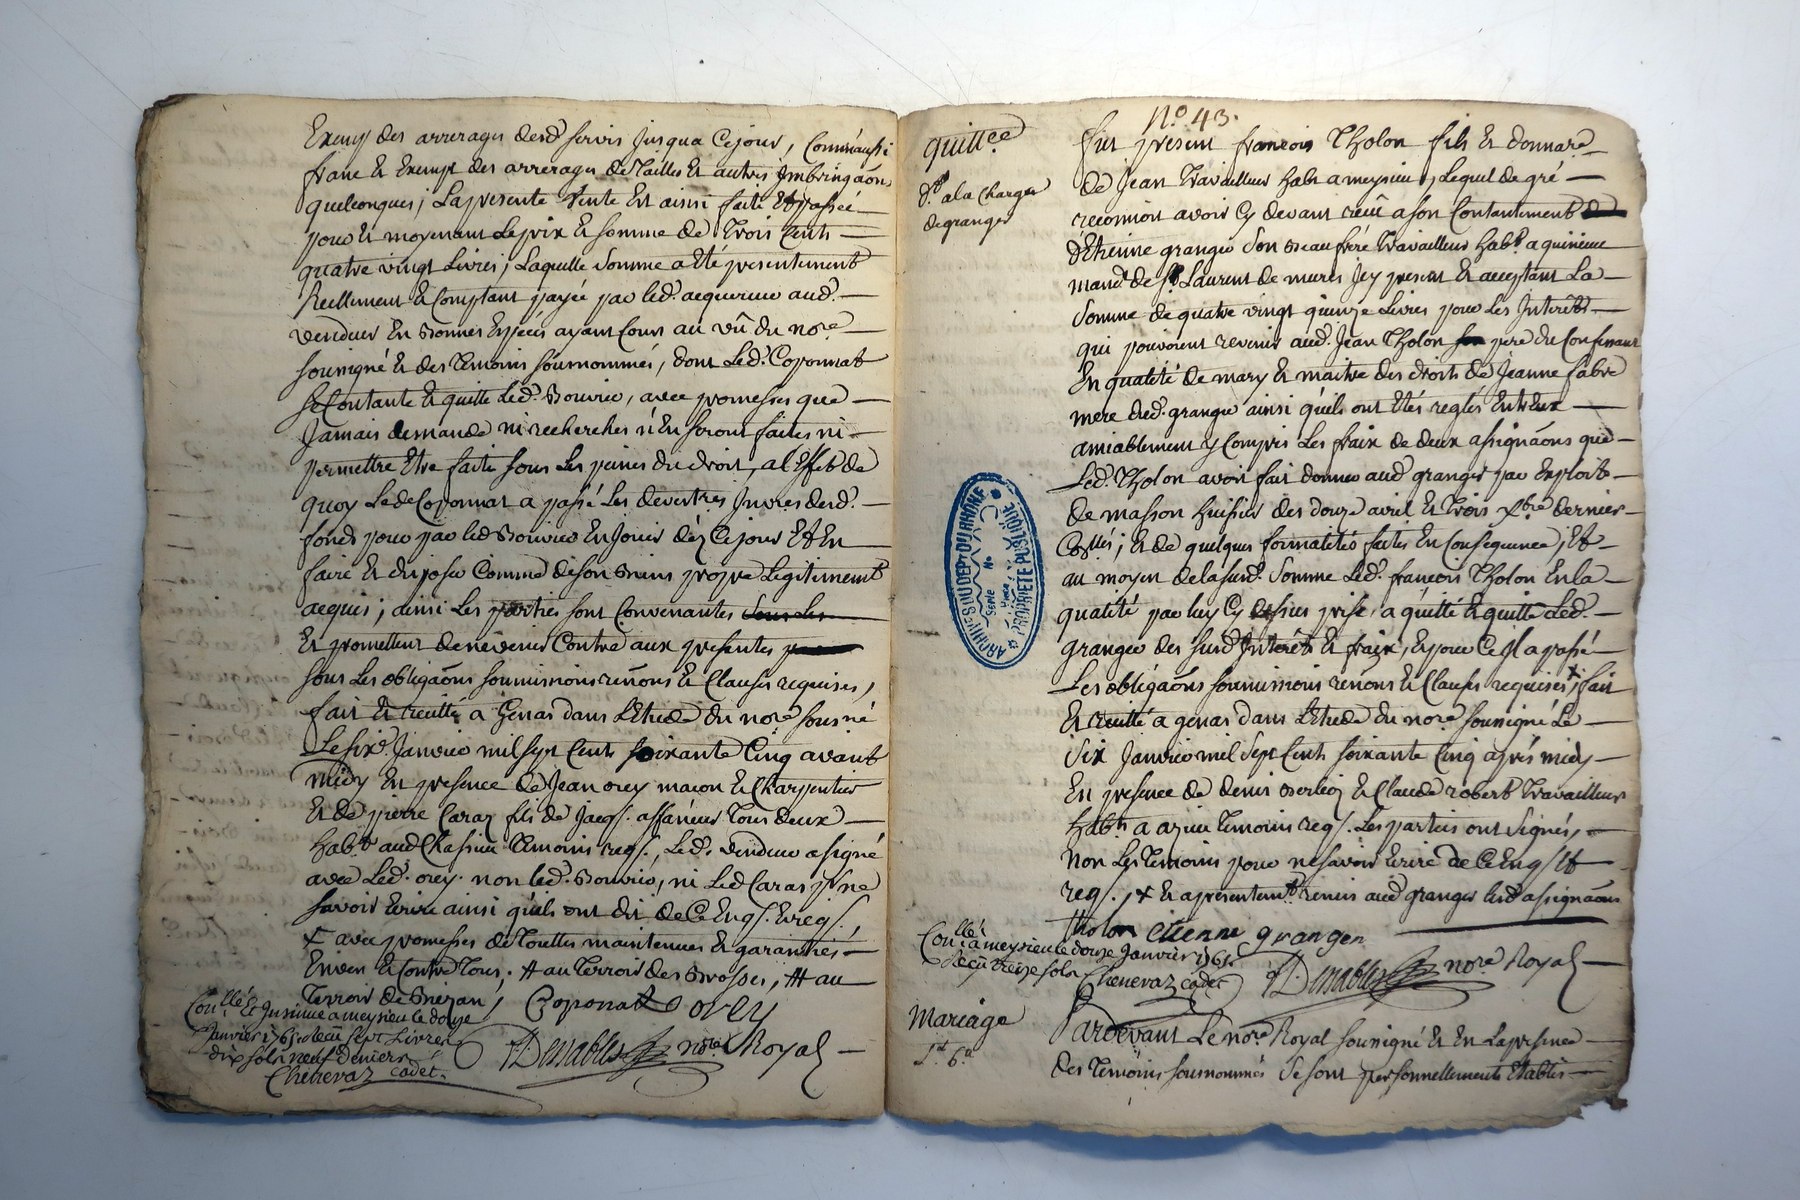 Exemp des arrerages desd. servis jusqua Cejour, Comm'aussi
franc & Exempt des arrerages de Tailles & autres Imbringaôns
quelconques; La presente Vente Est ainsi faite Et passée
pour & moyenant Le prix & somme de Trois Cents
quatre vingt Livres; Laquelle somme a Eté presentement
Reellement & Comptant payée par led. acquereur aud.
vendeur En Bonnes Espéces ayant Cours au vû du nore
soussigné & des Temoins sousnommés, dont Led. Coponnat
se Contante & quitte Led. Bouvier, avec promesses que
Jamais demande ni recherches n'En seront faites ni
permettre Etre faite sous Les peines du droit, al Effet de
quoy Led. Coponnat a passé Les devestres Invres dud.
fonds pour par led Bouvier En Jouir dés Cejour Et En
faire & disposer Comme de son Bien propre Legitimement
acquis; ainsi Les parties sont Convenantes sous les
Et promettent de nevenir Contre aux presentes
sous Les obligaôns soumissions renôns & Clauses requises,
fait & recitté a Genas dans L'Etude du nore sousné
Le six. Janvier mil sept Cent soixante Cinq avant
midy En presence de Jean orey maçon & Charpentier
& de pierre Caraz fils de Jacqs. affaneur Tous deux
habts aud Chassieu Temoins reqs., Led. vendeur a signé
avec Led. orey. non led. Bouvier, ni Led Caraz pr ne
savoir Ecrire ainsi quils ont dit de Ce Enqs. & reqs.,
+ avec promesses de Touttes maintenues & garanties
Envers & Contre Tous. # au Terroir des Brosses, ## au
Terroir de Brezan,
Coponat orey
Conllé. & Insinué a meysieu le douze
Janvier 1765 Reçu sept Livres
dix sols neuf deniers
Chenevaz cadet.
Desnables nore Royal
No. 43.
quittce
Do. a la Charge
de granger
fut present françois Tholon fils & donnatre
de Jean Travailleur habt a meysieu, Lequel de gré
reconnoit avoir Cy devant recûe a son Contantement
d'Etienne granger son Beaufrére Travailleur habt. a quinieux
mand. de St. Laurent de mures Icy present & acceptant La
somme de quatre vingt quinze Livres pour Les Interêts
qui pouvoient revenir aud. Jean Tholon pere du Confessant
En qualité de mary & maitre des droits de Jeanne fabre
mere dud. granger ainsi quils ont Etés reglés Entr'Eux
amiablement y Compris Les fraix de deux assignaôns que
Led. Tholon avoit fait donner aud granger par Exploits
de masson huissier des douze avril & Trois Xbre dernier
Conllés; & de quelques formalités faites En Consequence; Et
au moyen de la susd. somme Led. françois Tholon En la
qualité par luy Cy dessus prise, a quitté & quitte Led.
granger des susd Interêts & fraix, & pour Ce Il a passé
Les obligaôns soumissions renôns & Clauses requises,+ fait
& recitté a genas dans L'Etude du nore soussigné Le
six Janvier mil sept Cent soixante Cinq après midy
En presence de denis Berlioz & Claude robert Travailleurs
habts a azieu Temoins reqs. Les parties ont signés,
non Les Temoins pour ne savoir Ecrire de Ce Enqs. &
reqs., + & a presentemt. remis aud granger lesd assignaôns
tholon etienne granger
Conllé. a meysieu le douze Janvier 1765
Reçu treize sols Chenevaz cadet
Desnables nore Royal
Mariage
Pardevant Le nore Royal soussigné & En La presence
des Temoins sousnommés se sont personnellement Etablis
ARCHIVES DU DEPT DU RHÔNE
Série
No
Pièce
PROPRIÉTÉ PUBLIQUE